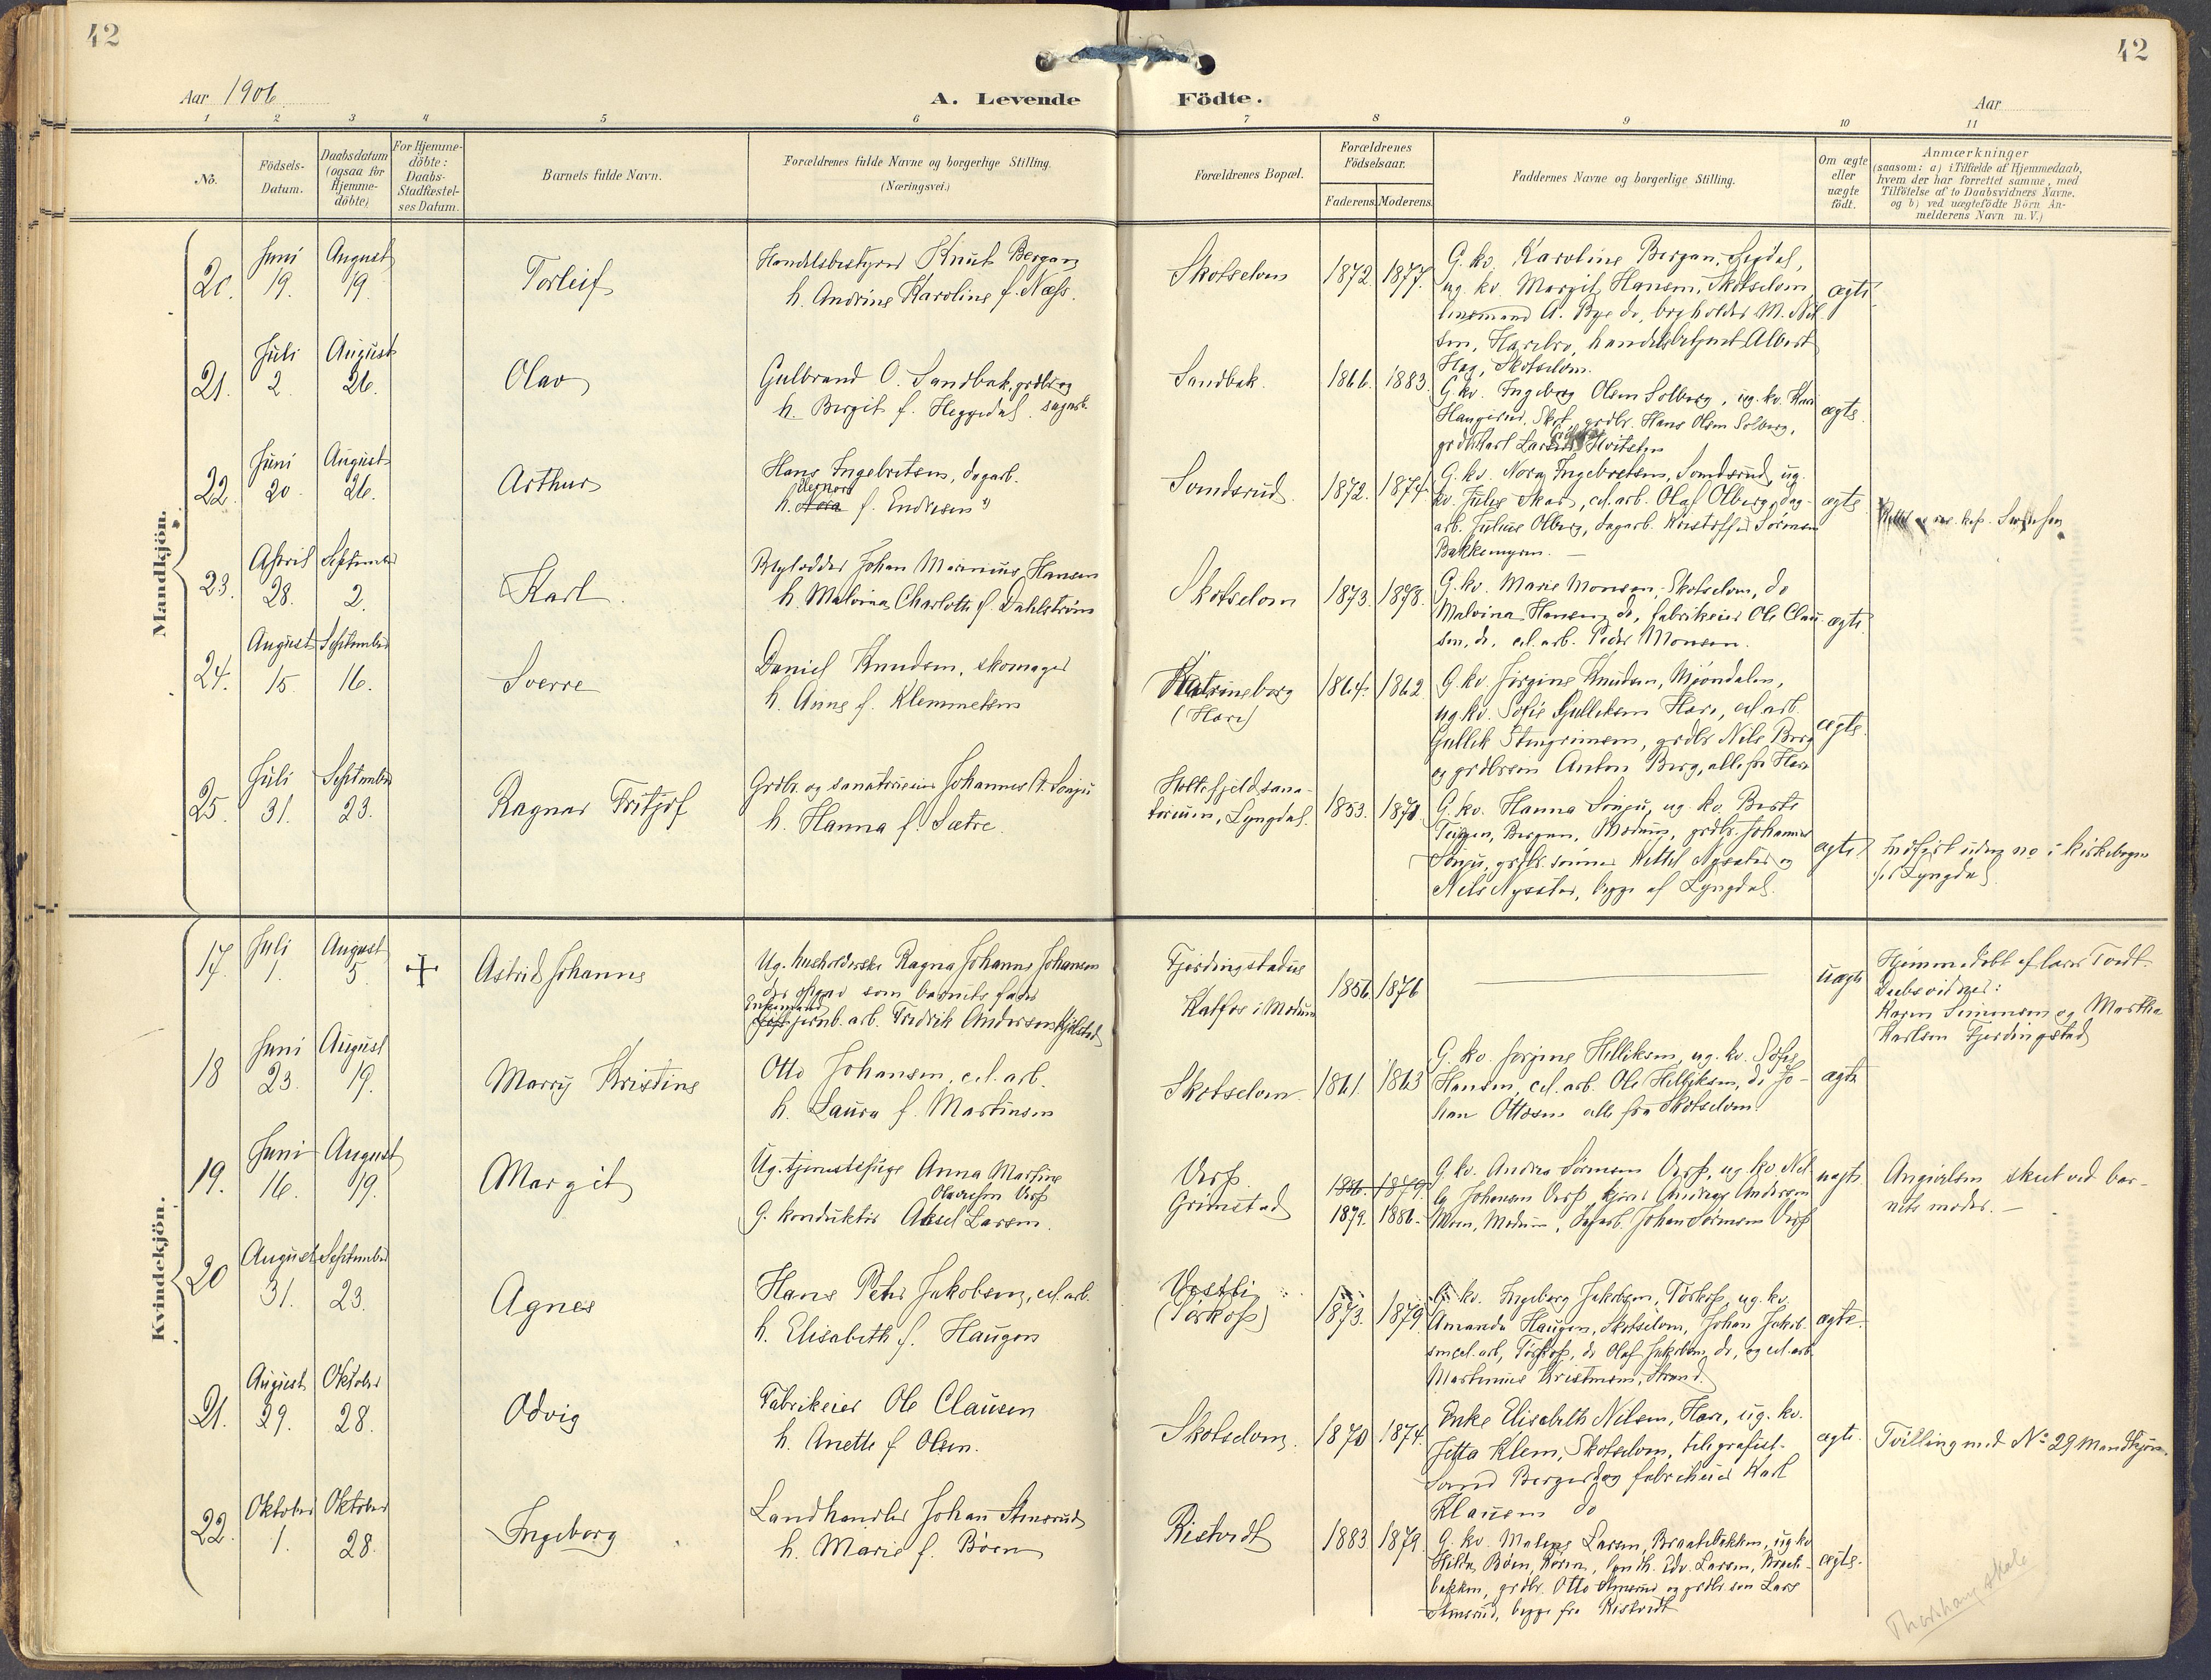 42
42
Aar 1906
A. Levende Födte.
Aar
1 2 3 4 5 6 7 8 9 10 11
No.
Födsels-Datum.
Daabsdatum (ogsaa for Hjemme-döbte)
For Hjemme-döbte: Daabs-Stadfæstel-ses Datum.
Barnets fulde Navn.
Forældrenes fulde Navne og borgerlige Stilling. (Næringsvei.)
Forældrenes Bopæl.
Forældrenes Födselsaar.
Faderens. Moderens.
Faddernes Navne og borgerlige Stilling.
Om ægte eller uægte födt.
Anmærkninger
(saasom: a) i Tilfælde af Hjemmedaab,
hvem der har forrettet samme, med
Tilföielse af to Daabsvidners Navne.
og b) ved uægtefödte Börn An-
melderens Navn m. V.)
Mandkjön.
20. Juni 19. August 19. Torleif
Handelsbestyrer Knut Bergan
h. Andrine Karoline f. Næss.
Skotselven 1872. 1877.
G. kv. Karoline Bergan, Sigdal,
ug. kv. Margit Hansen, Skotselven,
lensmand A. Bye do, bogholder M. Nil-
sen, Harebro, handelsbetjent Albert
Hag, Skotselven.
ægte
21. Juli 2. August 26. Olav
Gulbrand O. Sandbak, grdbr og
h. Birgit f. Heggedal. sagarb.
Sandbak. 1866. 1883.
G. kv. Ingeborg Olsen Solberg, ug. kv. Kari
Haugerud, Skot. grdbr. Hans Olsen Solberg,
ægte.
22. Juni 20. August 26. Arthur
Hans Ingebretsen, dagarb.
h. Nora f. Endresen
Somdrud. 1872. 1874.
G. kv. Nora Ingebretsen, Somdrud, ug.
kv. Julie Skar, cel. arb. Olaf Olberg, dag-
arb. Julius Olberg, dagarb. Kristoffer Sørensen
Bakkemyren. —
ægte.
23. April 28. September 2. Karl
Johan Marinius Hansen
h. Malvina Charlotte f. Dahlström
Skotselven 1873. 1878.
G. kv. Marie Monsen, Skotselven, do
Malvina Hansen do, fabrikeier Ole Clau-
sen, do, cel. arb. Peder Monsen.
ægte.
24. August 15. September 16. Sverre
Daniel Knudsen, skomager
h. Anne f. Klemmetsen
Katrineborg (Hare) 1864. 1862
G. kv. Jørgine Knudsen, Mjøndalen,
ug. kv. Sofie Gulliksen Hare, cel arb
Gullik Stengrimsen, grdbr Nils Berg
og grdbrsøn Anton Berg, alle fra Hare
ægte.
25. Juli 31. September 23. Ragnar Fritjof
Grdbr. og sanatorieeier Johannes A. Sønju
h. Hanna f. Sætre.
Holtefjeld sana-
torium, Lyngdal. 1853. 1870
G. kv. Hanna Sønju, ug. kv. Berte
Teigen, Bergan, Modum, grdbr. Johannes
Sønju, grdbr. sønner Kittel Nysæter og
Nils Nysæter, begge af Lyngdal.
ægte
Indført uden no i kirkebogen
for Lyngdal
Kvindekjön.
17. Juli 1. August 5. Astrid Johanne
Ug. husholderske Ragna Johanne Johansen
der opgav som barnets fader
jernb. arb. Fredrik Andersen
Fjerdingstadøe
Katfos i Modum
1856 1876
uægte
Hjemmedøbt af lærer Tvedt.
Daabsvidner:
Karen Simonsen og Martha
Karlsen Fjerdingstad
18 Juni 23. August 19. Marry Kristine
Otto Johansen, cel. arb.
h. Laura f. Martinsen
Skotselven. 1861. 1863
G. kv. Jørgine Helliksen, ug. kv. Sofie
Hansen, cel. arb. Ole Helliksen, do Jo-
han Ottosen alle fra Skotselven.
ægte
19. Juni 16. August 19. Margit
Ug. tjenestepige Anna Martine
Olavesen Verp
G. konduktør Aksel Larsen.
Verp.
Grimstad
1886. 1879.
1879. 1886.
G. kv. Andrea Sørensen Verp, ug. kv. Nel-
ly Johansen Verp, Andreas Andersen
Moen, Modum, dagarb. Johan Sørensen Verp
uægte.
Angivelsen skeet ved bar-
nets moder. —
20 August 31. September 23. Agnes
Hans Peter Jakobsen, cel. arb.
h. Elisabeth f. Haugen
Vestli
(Tørkop) 1873. 1879.
G. kv. Ingeborg Jakobsen, Tørkop, ug. kv.
Amanda Haugen, Skotselven, Johan Jakob-
sen cel. arb, Tørkop, do Olaf Jakobsen, do, og cel. arb
Martinius Kristensen, Strand.
ægte.
21. August 29. Oktober 28. Odvig
Fabrikeier Ole Clausen
h. Anette f Olsen.
Skotselven. 1870 1874.
Enke Elisabeth Nilsen, Hare, ug. kv.
Jetta Klem, Skotselven, telegrafist-
Klausen do
ægte.
Tvilling med No 29 Mandkjøn.
22. Oktober 1. Oktober 28. Ingeborg
Landhandler Johan Stensrud
h. Marie f. Bøen
Ristvedt 1883. 1879.
G. kv. Maleng Larsen, Braatebakken, ug kv
Hilda Bøen, Edv. Larsen, Braate-
bakken, grdbr. Otto Stensrud og grdbr. søn Lars
Stensrud, begge fra Ristvedt
ægte.